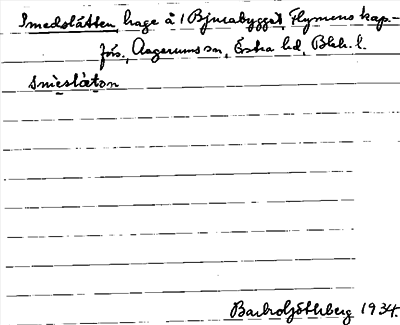 Smedslätten, hage å 1 Bjurabygget, Flymens kap-
förs., Augerums sn, Östra hd, Blek. l.
smeslæton
Barbro Götherberg 1934.